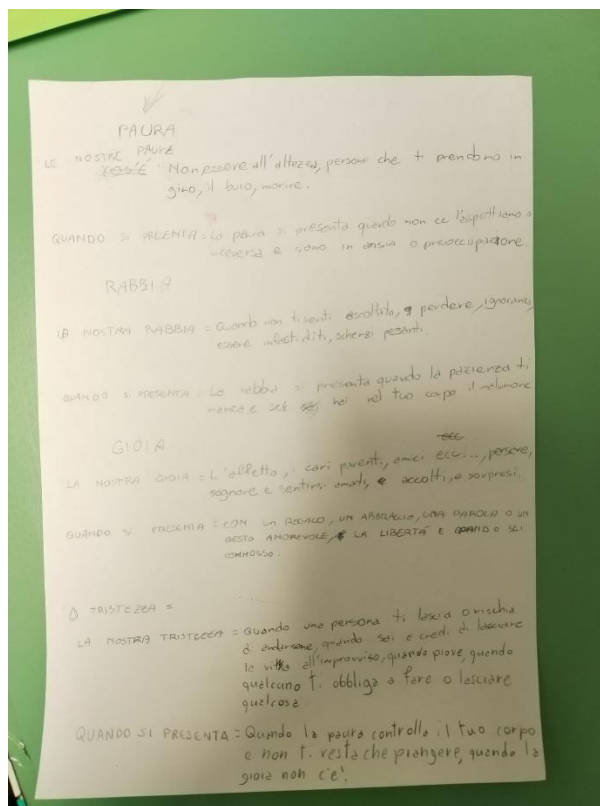 PAURA
LE NOSTRE PAURE
Non essere all'altezza, persone che ti prendono in
giro, il buio, morire.
QUANDO SI PRESENTA = La paura si presenta quando non ce l'aspettiamo o
viceversa e siamo in ansia o preoccupazione.
RABBIA
LA NOSTRA RABBIA = Quando non ti senti ascoltato, perdere, ignoranza,
essere infastiditi, scherzi pesanti.
QUANDO SI PRESENTA = La rabbia si presenta quando la pazienza ti
manca e hai nel tuo corpo il malumore
GIOIA
LA NOSTRA GIOIA = L'affetto, i cari parenti, amici ecc..., persone,
sognare e sentirsi amati, accolti, e sorpresi.
QUANDO SI PRESENTA = CON UN REGALO, UN ABBRACCIO, UNA PAROLA O UN
GESTO AMOREVOLE, LA LIBERTÀ E QUANDO SEI
COMMOSSO.
TRISTEZZA =
LA NOSTRA TRISTEZZA = Quando una persona ti lascia o rischia
di andarsene, quando sai e credi di lasciare
la vita all'improvviso, quando piove, quando
qualcuno ti obbliga a fare o lasciare
qualcosa.
QUANDO SI PRESENTA = Quando la paura controlla il tuo corpo
e non ti resta che piangere, quando la
gioia non c'e'.